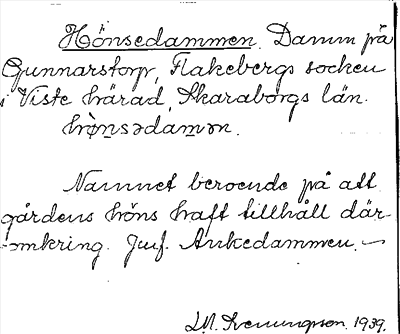 Hönsedammen. Damm på
Gunnarstorp, Flakebergs socken
i Viste härad, Skaraborgs län.
hø̀nsədamən.
Namnet beroende på att
gårdens höns haft tillhåll där-
omkring. Jmf. Ankedammen.
1939.